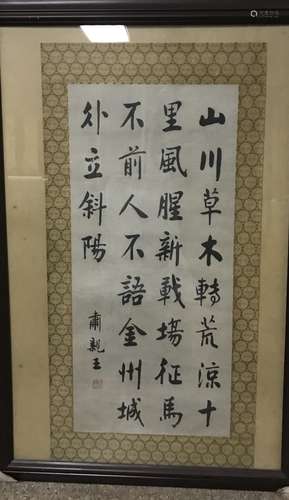 山川草木轉荒涼十
里風腥新戰場征馬
不前人不語金州城
外立斜陽
肅親王